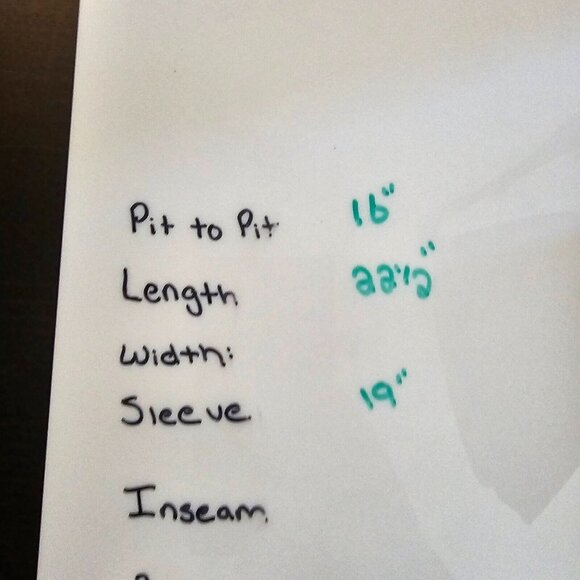 Pit to Pit 16"
Length 22 1/2"
Width:
Sleeve 19"
Inseam